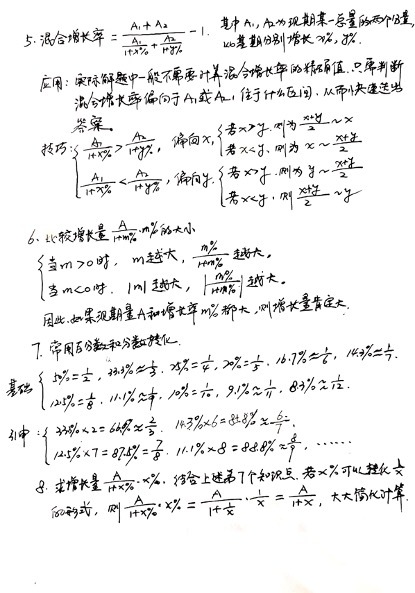 5. 混合增长率 = (A₁+A₂)/(A₁/(1+x%) + A₂/(1+y%)) - 1. 其中A₁, A₂为现期某一总量的两个分量,
比基期分别增长x%, y%.
应用: 实际解题中一般不需要计算混合增长率的精确值. 只需判断
混合增长率偏向于A₁或A₂, 位于什么区间, 从而快速选出
答案.
技巧: { A₁/(1+x%) > A₂/(1+y%), 偏向x, { 若x>y, 则为 (x+y)/2 ~ x
若x<y, 则为 x ~ (x+y)/2
A₁/(1+x%) < A₂/(1+y%), 偏向y. { 若x>y, 则为 y ~ (x+y)/2
若x<y, 则 (x+y)/2 ~ y
6. 比较增长量 A/(1+m%)·m% 的大小
{ 当m>0时, m越大, m%/(1+m%) 越大.
当m<0时, |m|越大, |m%/(1+m%)| 越大.
因此, 如果现期量A和增长率m%都大, 则增长量肯定大.
7. 常用百分数和分数转化.
基础 { 50%=1/2, 33.3%≈1/3, 25%=1/4, 20%=1/5, 16.7%≈1/6, 14.3%≈1/7.
12.5%=1/8, 11.1%≈1/9, 10%=1/10, 9.1%≈1/11, 8.3%≈1/12.
引申: { 33.3%×2=66.6%≈2/3. 14.3%×6=85.8%≈6/7.
12.5%×7=87.5%=7/8. 11.1%×8=88.8%≈8/9, ······
8. 求增长量 A/(1+x%)·x%. 结合上述第7个知识点. 若x%可以转化 1/x
的形式, 则 A/(1+x%)·x% = A/(1+1/x)·1/x = A/(1+x), 大大简化计算.